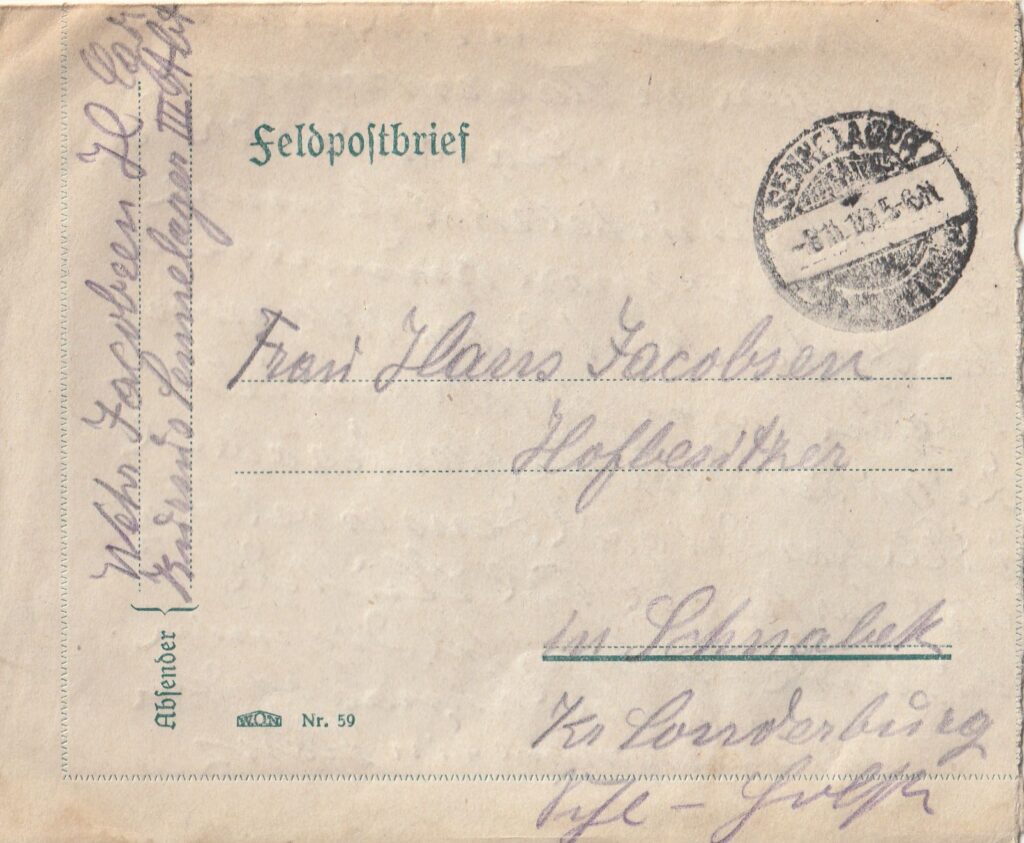 Feldpostbrief
SENNELAGER
-8.11.
5-6N
Frau Hans Jacobsen
Hofbesitzer
in Schnabek
Kr Sonderburg
Schl - Holst
Absender
Wehr Jacobsen
Sennelager III Abt
WON Nr. 59